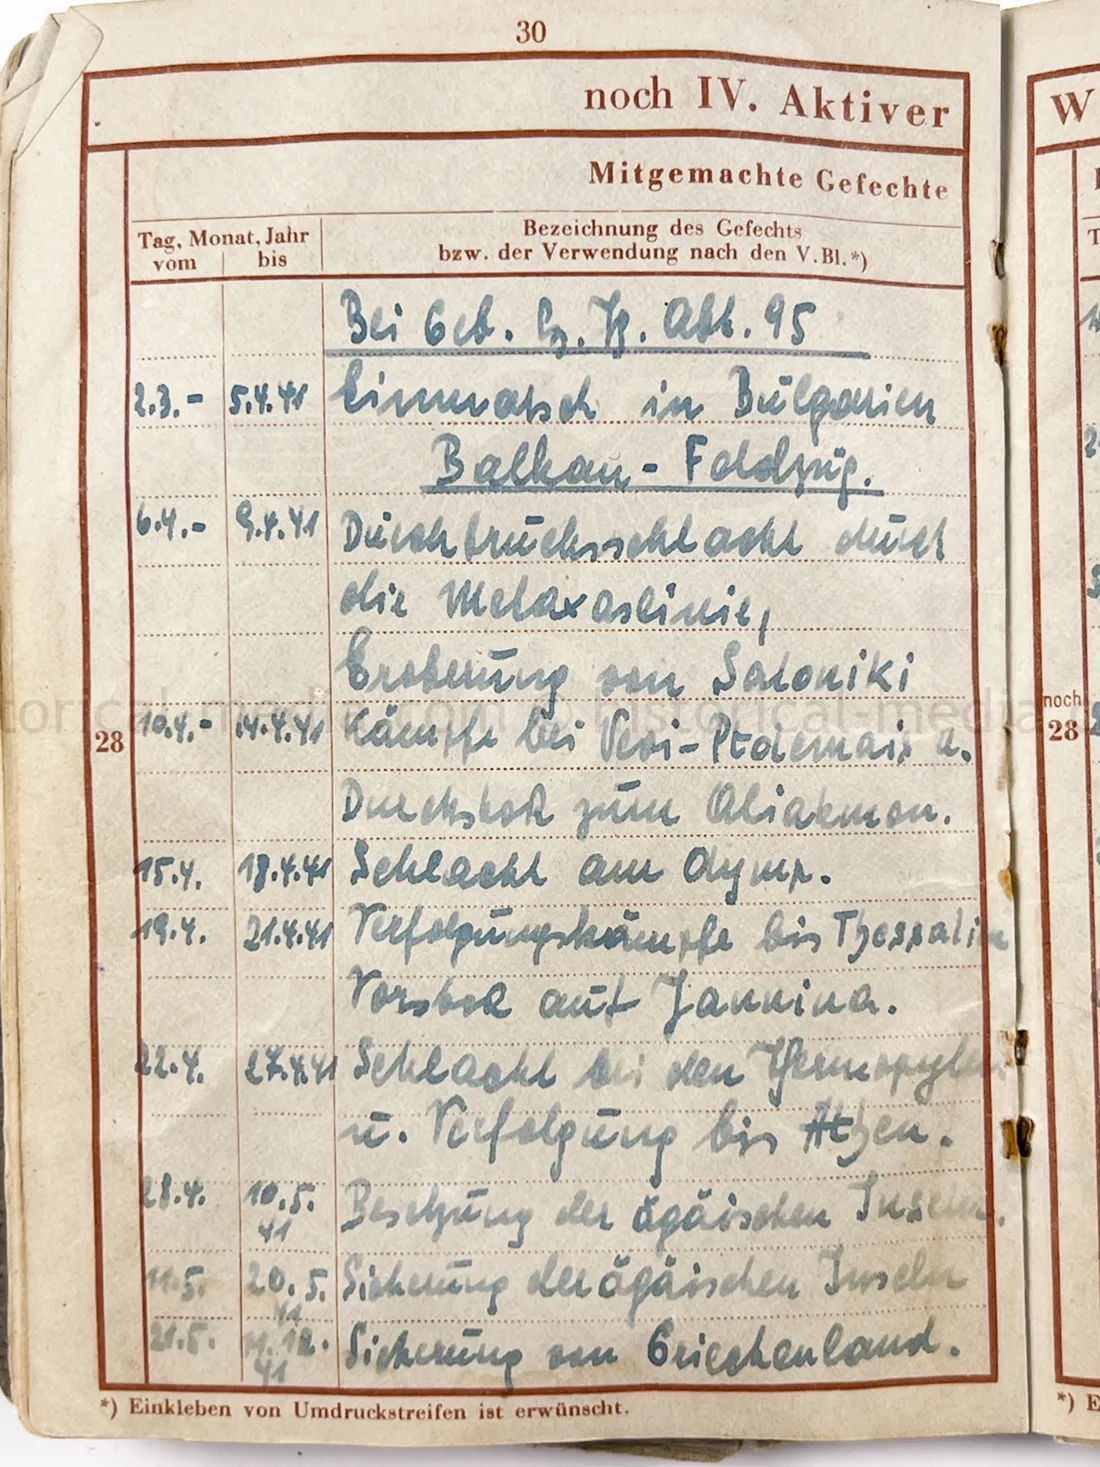 30
noch IV. Aktiver
Mitgemachte Gefechte
Tag, Monat, Jahr
vom bis
Bezeichnung des Gefechts
bzw. der Verwendung nach den V. Bl.*)
Bei Geb. Abt. 95
2.3.- 5.4.41 Einmarsch in Bulgarien
Balkan-Feldzug.
6.4.- 9.4.41 Durchbruchsschlacht durch
die Metaxaslinie,
Eroberung von Saloniki
10.4.- 14.4.41 Kämpfe bei Vevi- u.
Durchstoß zum Aliakmon.
15.4. 18.4.41 Schlacht am Olymp.
19.4. 21.4.41 Verfolgungskämpfe bis
Vorstoß auf Jannina.
22.4. 27.4.41 Schlacht bei den Thermopylen
u. Verfolgung bis Athen.
28.4. 10.5.
41 Besetzung der ägäischen Inseln.
11.5. 20.5.
41 Sicherung der ägäischen Inseln
21.5. 41 Sicherung von Griechenland.
28
*) Einkleben von Umdruckstreifen ist erwünscht.
W
noch
28
*) E
historical-media